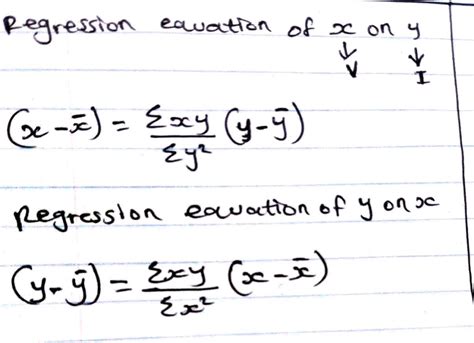 Regression equation of x on y
↓ ↓
V I
(x - x̄) = Σxy/Σy² (y - ȳ)
Regression equation of y on x
(y - ȳ) = Σxy/Σx² (x - x̄)